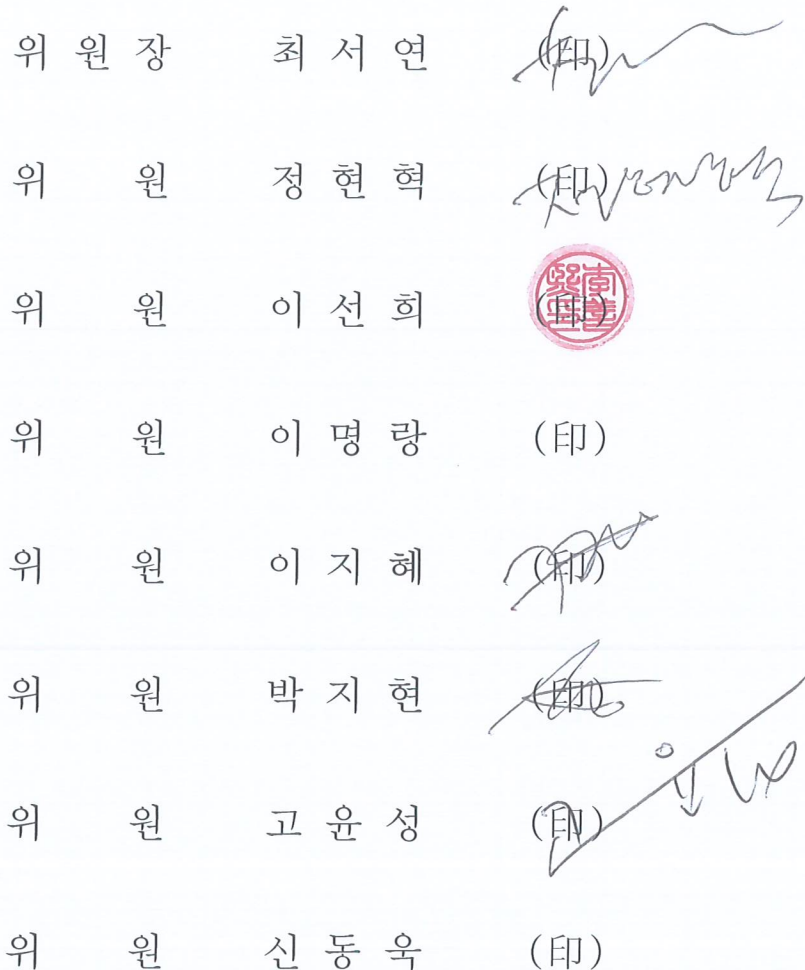 위 원 장 최 서 연 (印)
위 원 정 현 혁 (印)
위 원 이 선 희 (印)
위 원 이 명 랑 (印)
위 원 이 지 혜 (印)
위 원 박 지 현 (印)
위 원 고 윤 성 (印)
위 원 신 동 욱 (印)